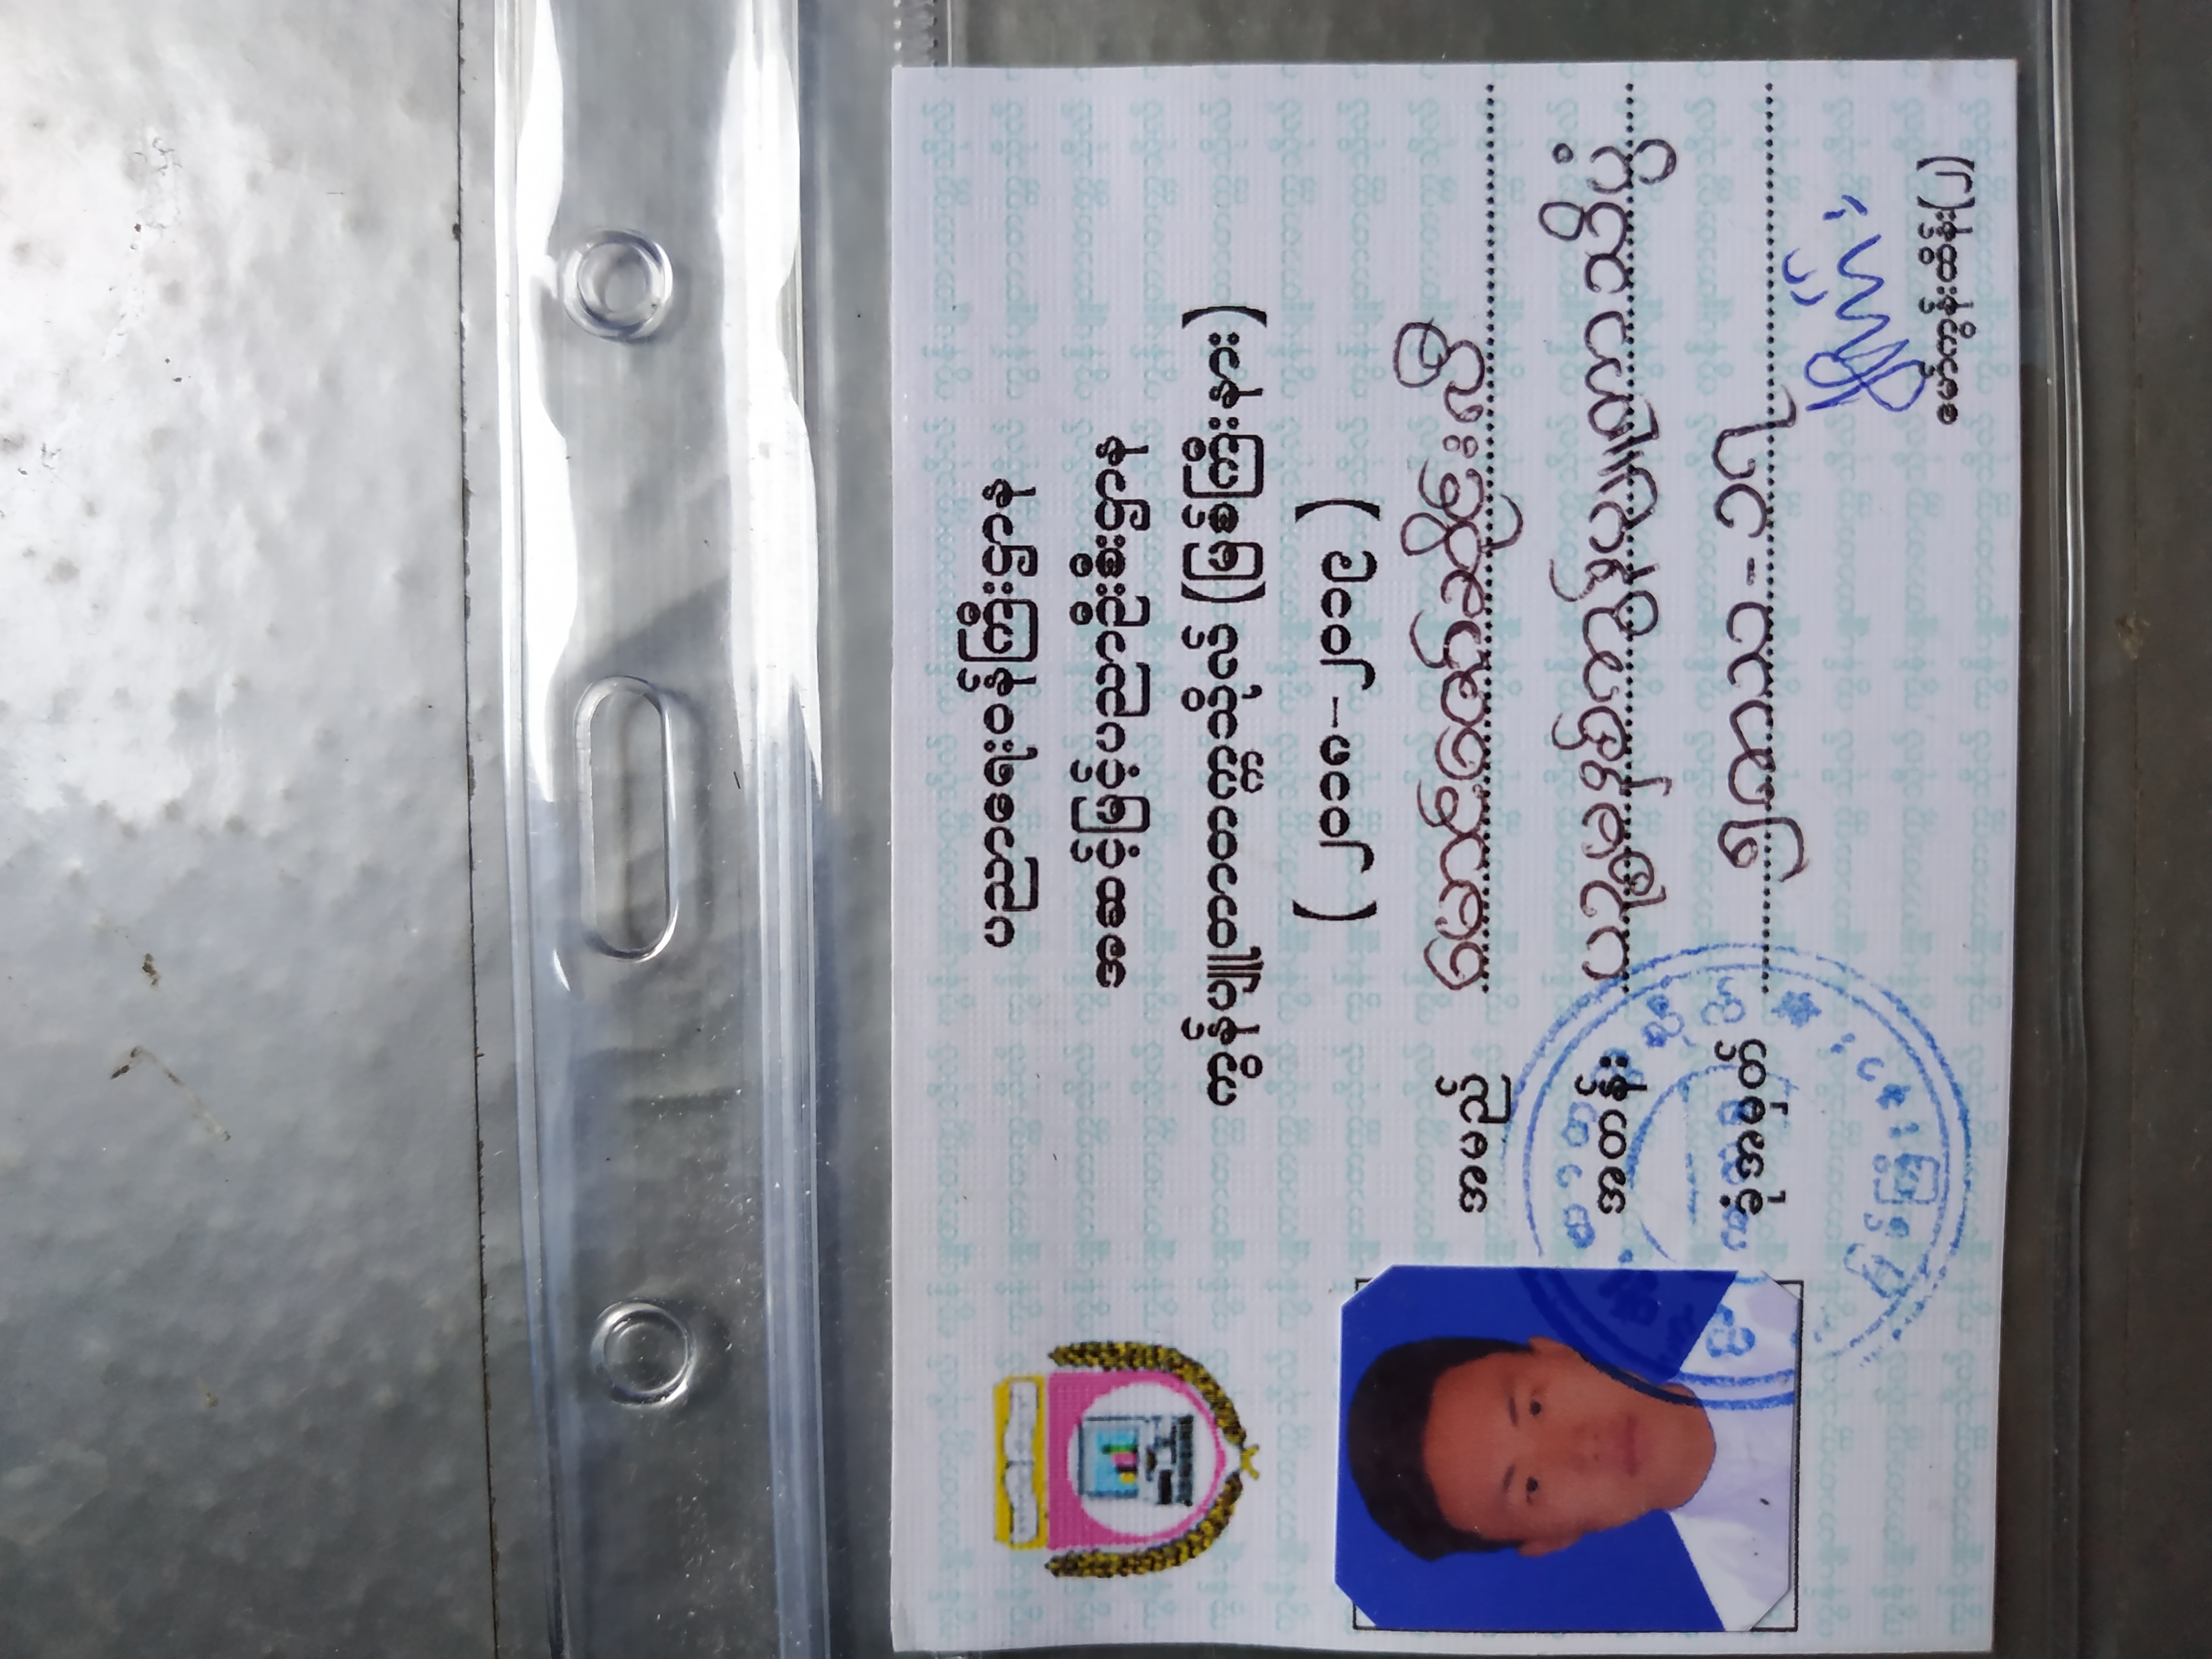 ပညာရေးဝန်ကြီးဌာန
အဆင့်မြင့်ပညာဦးစီးဌာန
ကွန်ပျူတာတက္ကသိုလ် (မြစ်ကြီးနား)
( ၂၀၁၈–၂၀၁၉ )
အမည် မောင်ဇော်ဆိုင်းလီ
အတန်း ပဉ္စမနှစ်ကွန်ပျူတာသိပ္ပံ
ခုံအမှတ် ၅ကသ-၁၇
မြစ်ကြီးနား
မော်ကွန်းထိန်း(၂)